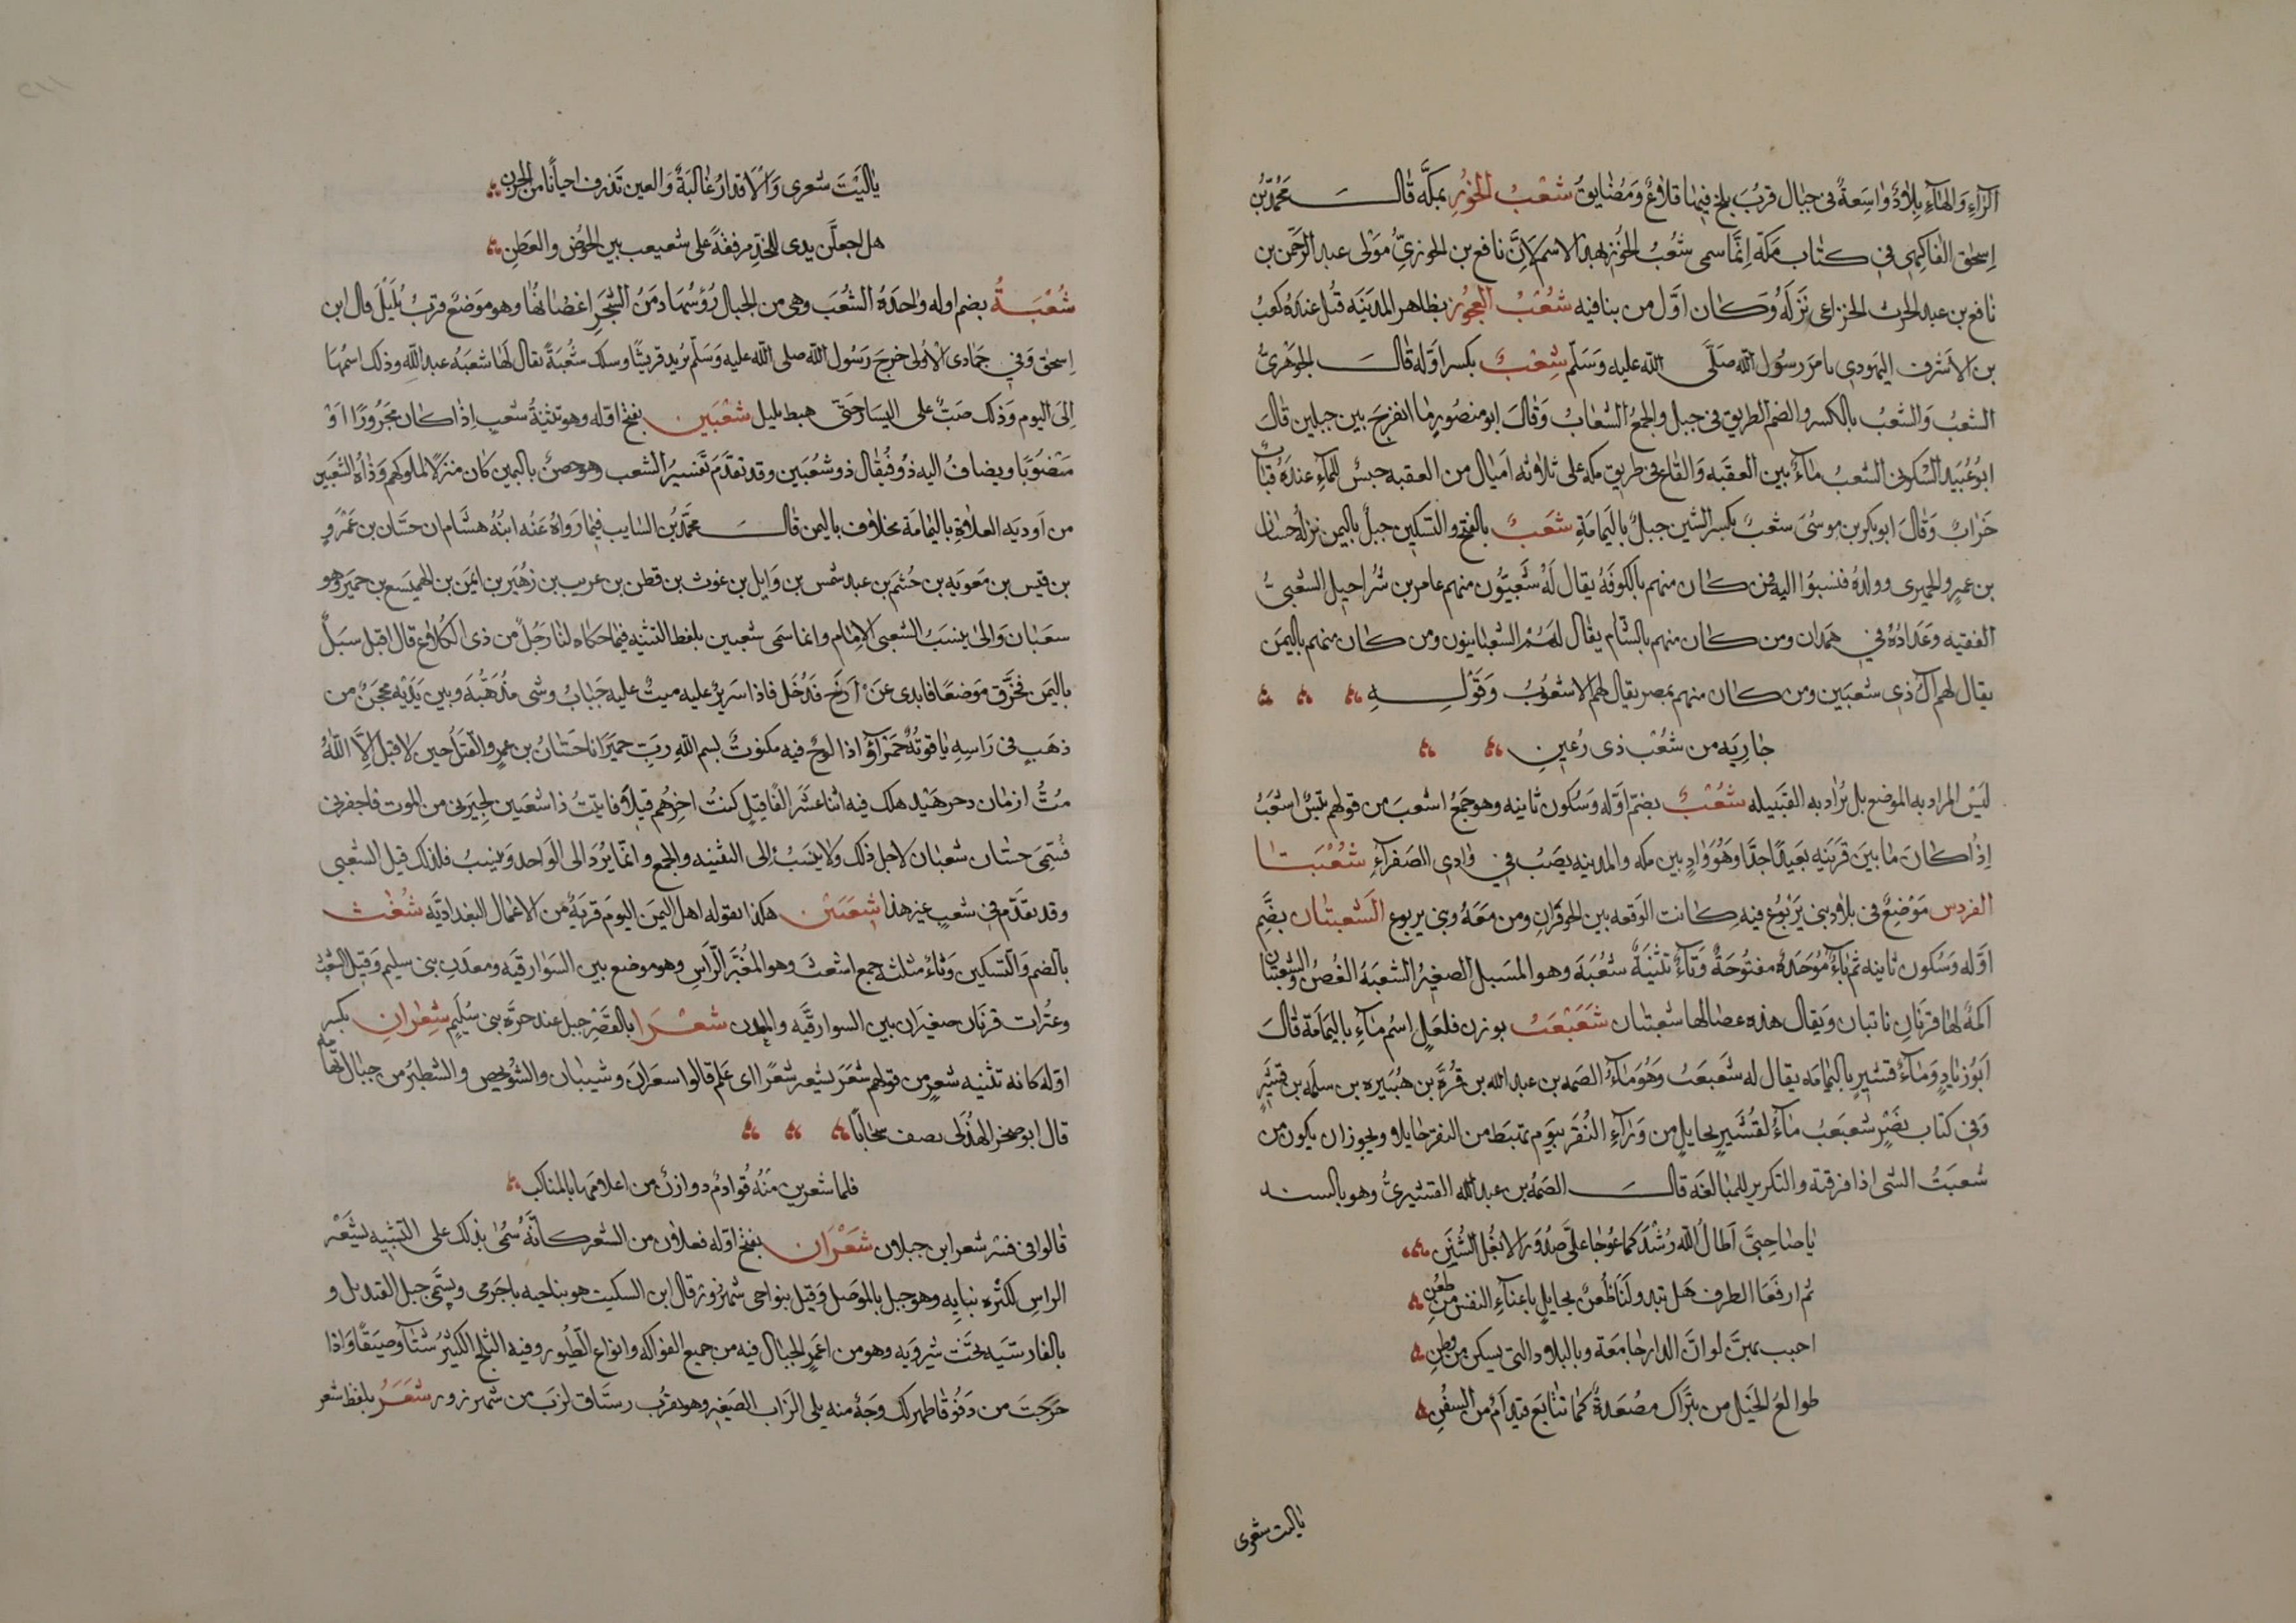 الزاء والهاء بلاد واسعة فى جبال قرب بلخ فيها قلاع ومضايق شعب الخوز بمكة قال محمد بن
اسحق الفاكهى فى كتاب مكة انما سمى شعب الخوز بهذا الاسم لان نافع بن الخوزى مولى عبد الرحمن بن
نافع بن عبد الحرث الخزاعى نزله وكان اول من بنا فيه شعب العجوز بظاهر المدينه قتل عنده كعب
بن الاشرف اليهودى بامر رسول الله صلى الله عليه وسلم شعب بكسر اوله قال الجوهرى
الشعب والشعب بالكسر والضم الطريق فى جبل والجمع الشعاب وقال ابو منصور ما انفرج بين جبلين قال
ابو عبيد السكونى الشعب ماء بين العقبه والقاع فى طريق مكه على ثلاثه اميال من العقبه حبس للماء عنده قباب
خراب وقال ابو بكر بن موسى شعب بكسر الشين جبل باليمامة شعب بالفتح والتسكين جبل باليمن نزله حسان
بن عمرو الحميرى وولده فنسبوا اليه فمن كان منهم بالكوفة يقال له شعبيون منهم عامر بن شراحيل الشعبى
الفقيه وعداده فى همدان ومن كان منهم بالشام يقال لهم الشعبانيون ومن كان منهم باليمن
يقال لهم آل ذى شعبين ومن كان منهم بمصر يقال لهم الاشعوب وقوله
جاريه من شعب ذى رعين
ليس المراد به الموضع بل يراد به القبيله شعب بضم اوله وسكون ثانيه وهو جمع اشعب من قولهم تيس اشعب
اذا كان ما بين قرنيه بعيدا جدا وهو واد بين مكه والمدينه يصب فى وادى الصفراء شعبتا
الفردس موضع فى بلاد بنى يربوع فيه كانت الوقعه بين الحوفزان ومن معه وبنى يربوع الشعبتان بضم
اوله وسكون ثانيه ثم باء موحدة مفتوحة وتاء تثنية شعبة وهو المسيل الصغير الشعبة الغصن والشعبتان
اكمة لها قرنان ناتيان ويقال هذه عصا لها شعبتان شعبعب بوزن فلعل اسم ماء باليمامة قال
ابو زياد وماء قشير باليمامه يقال له شعبعب وهو ماء الصمه بن عبد الله بن قرة بن هبيره بن سلمه بن قشير
وفى كتاب نصر شعبعب ماء لقشير بحايل من وراء النقر بيوم تهبط من النقر حايلا ويجوز ان يكون من
شعبت الشى اذا فرقته والتكرير للمبالغة قال الصمه بن عبد الله القشيرى وهو بالسند
يا صاحبى اطال الله رشدكما عوجا على صدور الابغل السنن
ثم ارفعا الطرف هل تبدو لنا ظعن بحايل باعناء النفس من ظعن
احبب بهن لو ان الدار جامعة وبالبلاد التى يسكن من وطن
طوالع الخيل من تبراك مصعدة كما تتابع قيدام من السفن
ياليت شعرى
ياليت شعرى والاقدار غالبة والعين تذرف احيانا من الحزن
هل اجعلن يدى للخد مرفقة على شعبعب بين الحوض والعطن
شعبة بضم اوله واحدة الشعب وهى من الجبال رؤسها ومن الشجر اغصانها وهو موضع قرب يليل قال ابن
اسحق وفى جمادى الاولى خرج رسول الله صلى الله عليه وسلم يريد قريشا وسلك شعبة يقال لها شعبة عبد الله وذلك اسمها
الى اليوم وذلك صب على اليسار حتى هبط بليل شعبين بفتح اوله وهو تثنية شعب اذا كان مجرورا او
منصوبا ويضاف اليه ذو فيقال ذو شعبين وقد تقدم تفسير الشعب وهو حصن باليمن كان منزلا لملوكهم وذات الشعبين
من اوديه العلاة باليمامة مخلاف باليمن قال محمد بن السايب فيما رواه عنه ابنه هشام ان حسان بن عمرو
بن قيس بن معويه بن جشم بن عبد شمس بن وايل بن غوث بن قطن بن عريب بن زهير بن ايمن بن الهميسع بن حمير وهو
سعبان والى ينسب الشعبى الامام وانما سمى شعبين بلفظ التثنيه فيما حكاه لنا رجل من ذى الكلاع قال اقبل سيل
باليمن فخرق موضعا فابدى عن ازج فدخل فاذا سرير عليه ميت عليه جباب وشى مذهبة وبين يديه محجن من
ذهب فى راسه ياقوتة حمراؤ اذا لوح فيه مكتوب بسم الله رب حمير انا حسان بن عمرو القيل حين لا قيل الا الله
مت ازمان دحر هيد هلك فيه اثنا عشر الفا قيل كنت اخرهم قيلا فاتيت ذا شعبين ليجيرنى من الموت فاخفرنى
فسمى حسان شعبان لاجل ذلك ولا ينسب الى التثنيه والجمع وانما يرد الى الواحد وينسب فلذلك قيل الشعبى
وقد تقدم فى شعب غير هذا شعبين هكذا يقوله اهل اليمن اليوم قرية من الاعمال البغداديه شعث
بالضم والتسكين وثاء مثلثه جمع اشعث وهو المغبر الراس وهو موضع بين السوارقيه ومعدن بنى سليم وقيل الشعث
وعنيزات قرنان صغيران بين السوارقيه والمعدن شعرا بالقصر جبل عند حرة بنى سليم شعران بكسر
اوله كانه تثنيه شعر من قولهم شعر يشعر شعرا اى علم قالوا سعران وشيبان والشويحص والشطير من جبال تهامه
قال ابو صخر الهذلى يصف سحابا
فلما شعرين منه قوادم دوازن من اعلامها بالمناكب
قالوا فى فسر شعر ابن جبلان شعران بفتح اوله فعلان من الشعر كانه سمى بذلك على التشبيه بشعر
الراس لكثره نباته وهو جبل بالموصل وقيل بنواحى شهرزور قال ابن السكيت هو بناحيه باجرمى ويسمى جبل القنديل و
بالفارسيه تخت شيرويه وهو من اعمر الجبال فيه من جميع الفواكه وانواع الطيور وفيه الثلج الكثير شتاء وصيفا واذا
خرجت من دقوقا ظهر لك وجه منه يلى الزاب الصغير وهو بقرب رستاق لزب من شهرزور شعر بلفظ شعر